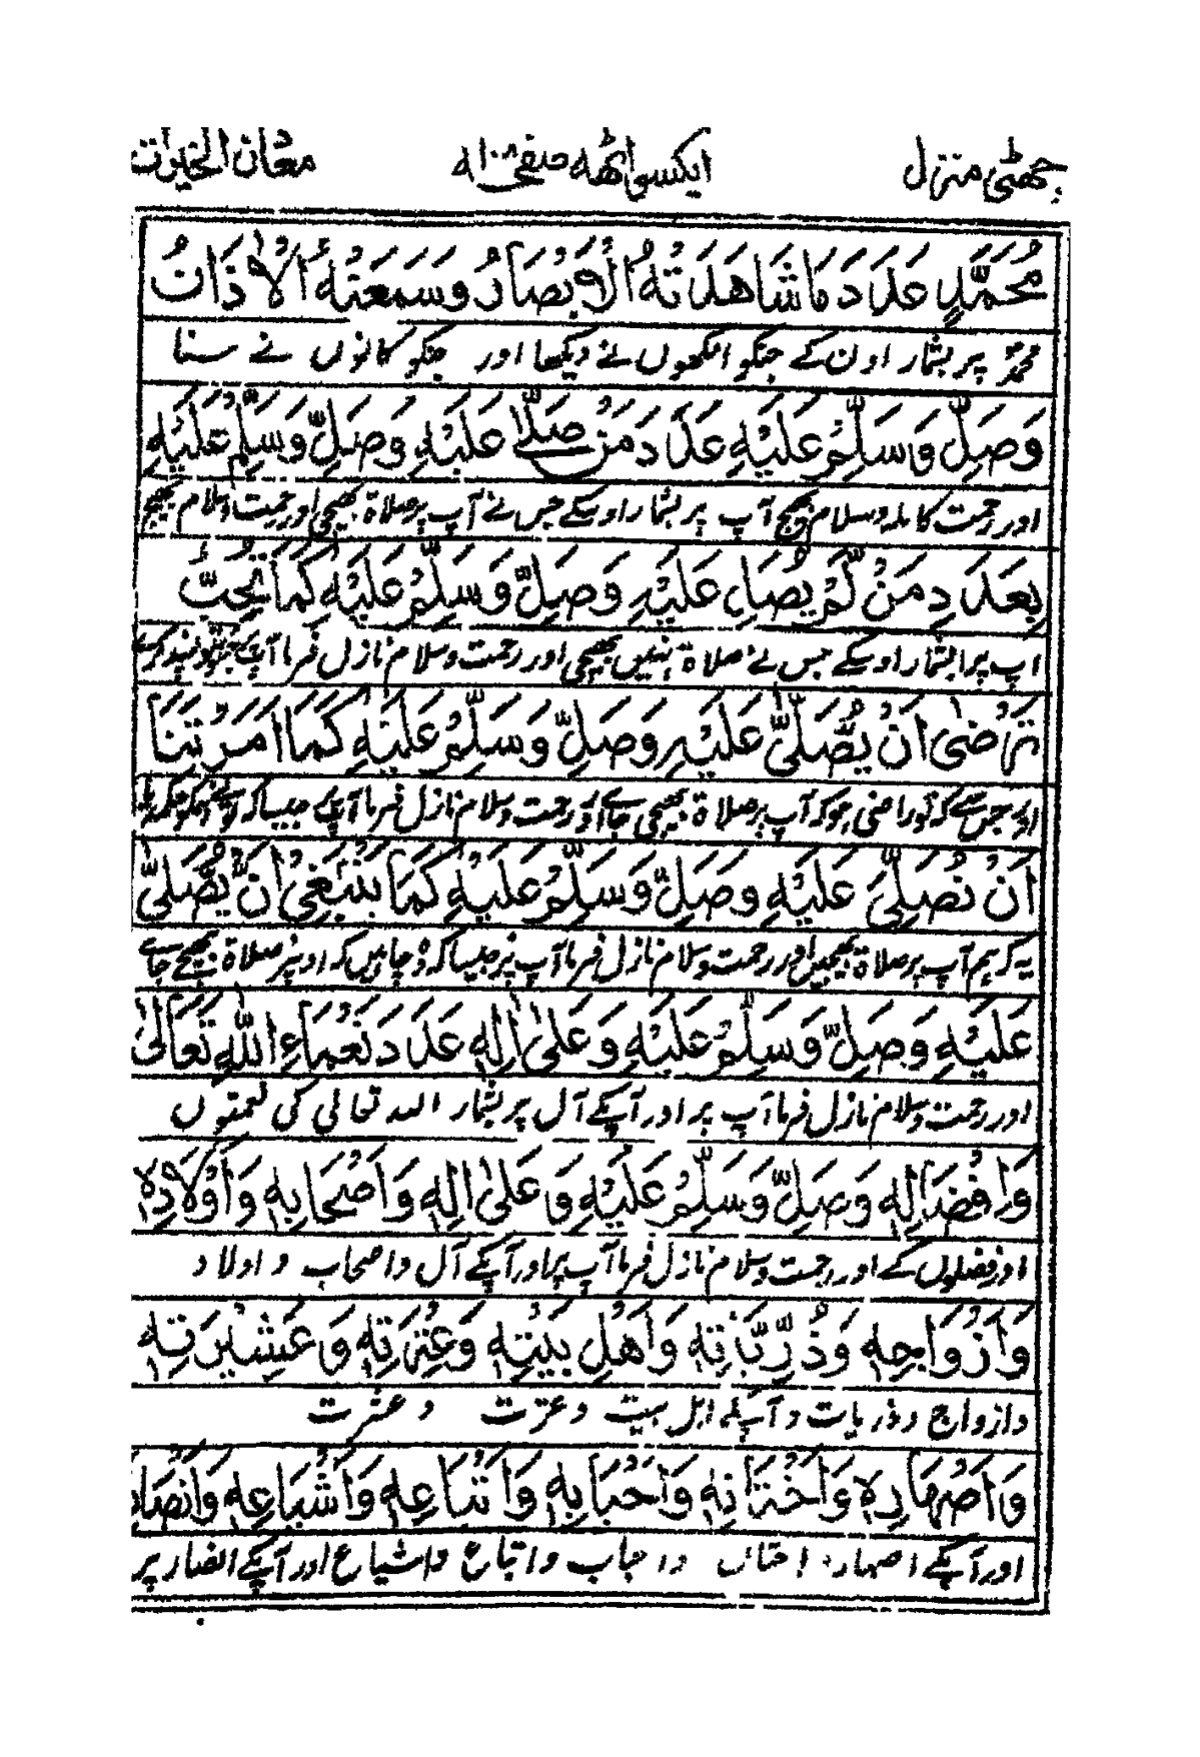 چھٹی منزل ایکسواٹھہ صفحہ ۱۰۸ معدن الخیرات
مُحَمَّدٍ عَدَدَ مَا شَاهَدَتْهُ الْاَبْصَارُ وَسَمِعَتْهُ الْاٰذَانُ
محمدؐ پر بشمار اون کے جنکو انکھوں نے دیکھا اور جنکو کانوں نے سنا
وَصَلِّ وَسَلِّمْ عَلَيْهِ عَدَدَ مَنْ صَلّٰى عَلَيْهِ وَصَلِّ وَسَلِّمْ عَلَيْهِ
اور رحمت کاملہ وسلام بھیج آپ پر بشمار اوسکے جس نے آپ پر صلاۃ بھیجی اور رحمت وسلام بھیج
بِعَدَدِ مَنْ لَّمْ يُصَلِّ عَلَيْهِ وَصَلِّ وَسَلِّمْ عَلَيْهِ كَمَا تُحِبُّ
اپ پر بشمار اوسکے جس نے صلاۃ نہیں بھیجی اور رحمت وسلام نازل فرما آپ پر
تَرْضٰى اَنْ يُّصَلّٰى عَلَيْهِ وَصَلِّ وَسَلِّمْ عَلَيْهِ كَمَا اَمَرْتَنَا
اور جس سے کہ تو راضی ہو کہ آپ پر صلاۃ بھیجی جاے اور رحمت وسلام نازل فرما آپ پر جیسا کہ تونے ہمکو حکم دیا
اَنْ نُصَلِّيَ عَلَيْهِ وَصَلِّ وَسَلِّمْ عَلَيْهِ كَمَا يَنْبَغِيْ اَنْ يُّصَلّٰى
یہ کہ ہم آپ پر صلاۃ بھیجیں اور رحمت وسلام نازل فرما آپ پر جیسا کہ وہ چاہیں کہ اونپر صلاۃ بھیجی جاے
عَلَيْهِ وَصَلِّ وَسَلِّمْ عَلَيْهِ وَعَلٰى اٰلِهٖ عَدَدَ نَعْمَاءِ اللّٰهِ تَعَالٰى
اور رحمت وسلام نازل فرما آپ پر اور آپکے آل پر بشمار اللہ تعالی کی نعمتوں
وَاِفْضَالِهٖ وَصَلِّ وَسَلِّمْ عَلَيْهِ وَعَلٰى اٰلِهٖ وَاَصْحَابِهٖ وَاَوْلَادِهٖ
اور فضلوں کے اور رحمت وسلام نازل فرما آپ پر اور آپکے آل و اصحاب و اولاد
وَاَزْوَاجِهٖ وَذُرِّيَّاتِهٖ وَاَهْلِ بَيْتِهٖ وَعِتْرَتِهٖ وَعَشِيْرَتِهٖ
و ازواج و ذریات و آپکے اہل بیت و عترت و عشرت
وَاَصْهَارِهٖ وَاَخْتَانِهٖ وَاَحْبَابِهٖ وَاَتْبَاعِهٖ وَاَشْيَاعِهٖ وَاَنْصَارِ
اور آپکے اصہار، اختاں و احباب و اتباع و اشیاع اور آپکے انصار پر